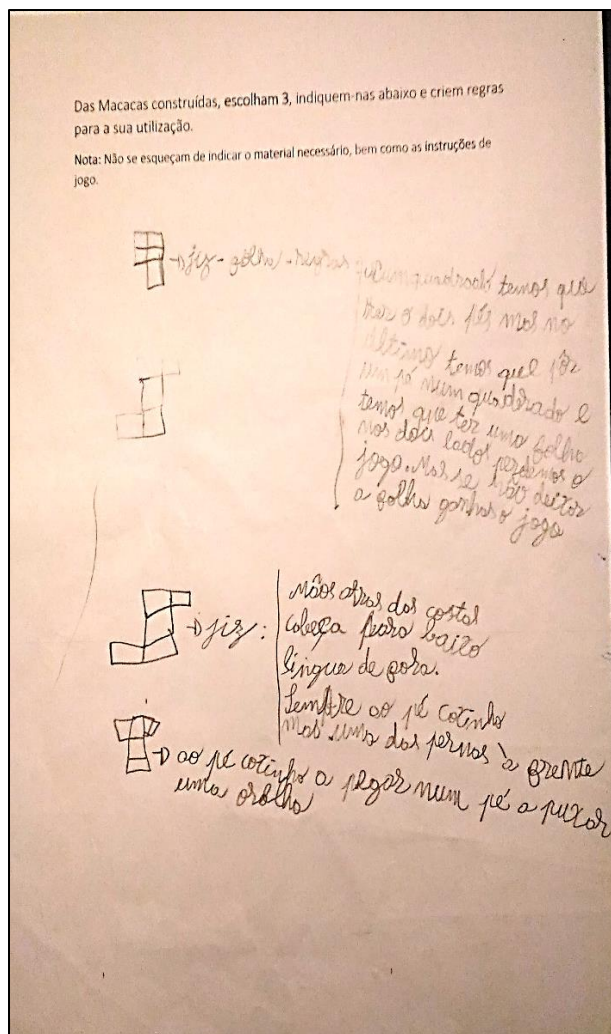 Das Macacas construídas, escolham 3, indiquem-nas abaixo e criem regras
para a sua utilização.
Nota: Não se esqueçam de indicar o material necessário, bem como as instruções de
jogo.
jiz - folha - regras quadrado temos que
ter o dois pés mas no
último temos que pôr
um pé num quadrado e
temos que ter uma folha
nos dois lados perdemos o
jogo. Mas se não deitar
a folha ganhas o jogo
jiz:
mãos atras das costas
cabeça para baixo
lingua de fora.
Sempre ao pé cotinho
mas uma das pernas à frente
ao pé cotinho a pegar num pé a puxar
uma orelha